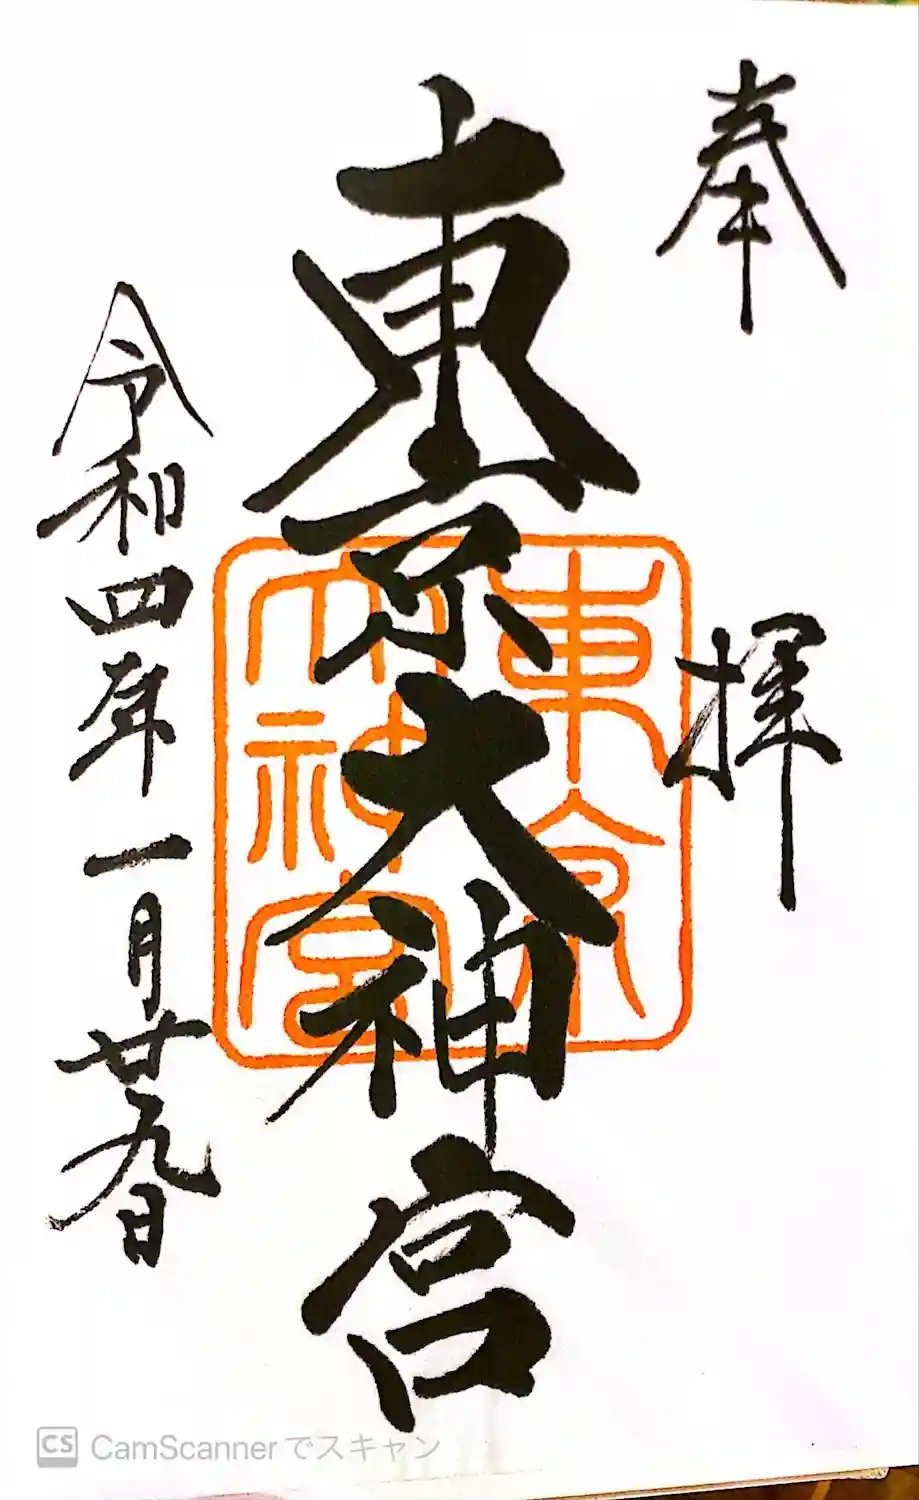 奉拝
東京大神宮
東京
大神宮
令和四年一月廿九日
CS CamScannerでスキャン